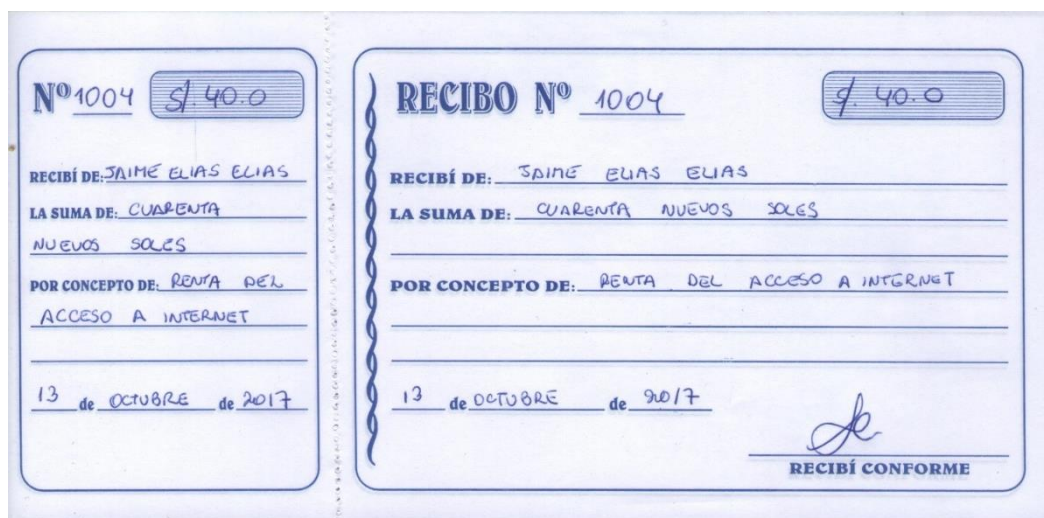 Nº 1004 S/. 40.0
RECIBÍ DE: JAIME ELIAS ELIAS
LA SUMA DE: CUARENTA
NUEVOS SOLES
POR CONCEPTO DE: RENTA DEL
ACCESO A INTERNET
13 de OCTUBRE de 2017
RECIBO Nº 1004 S/. 40.0
RECIBÍ DE: JAIME ELIAS ELIAS
LA SUMA DE: CUARENTA NUEVOS SOLES
POR CONCEPTO DE: RENTA DEL ACCESO A INTERNET
13 de OCTUBRE de 2017
RECIBÍ CONFORME